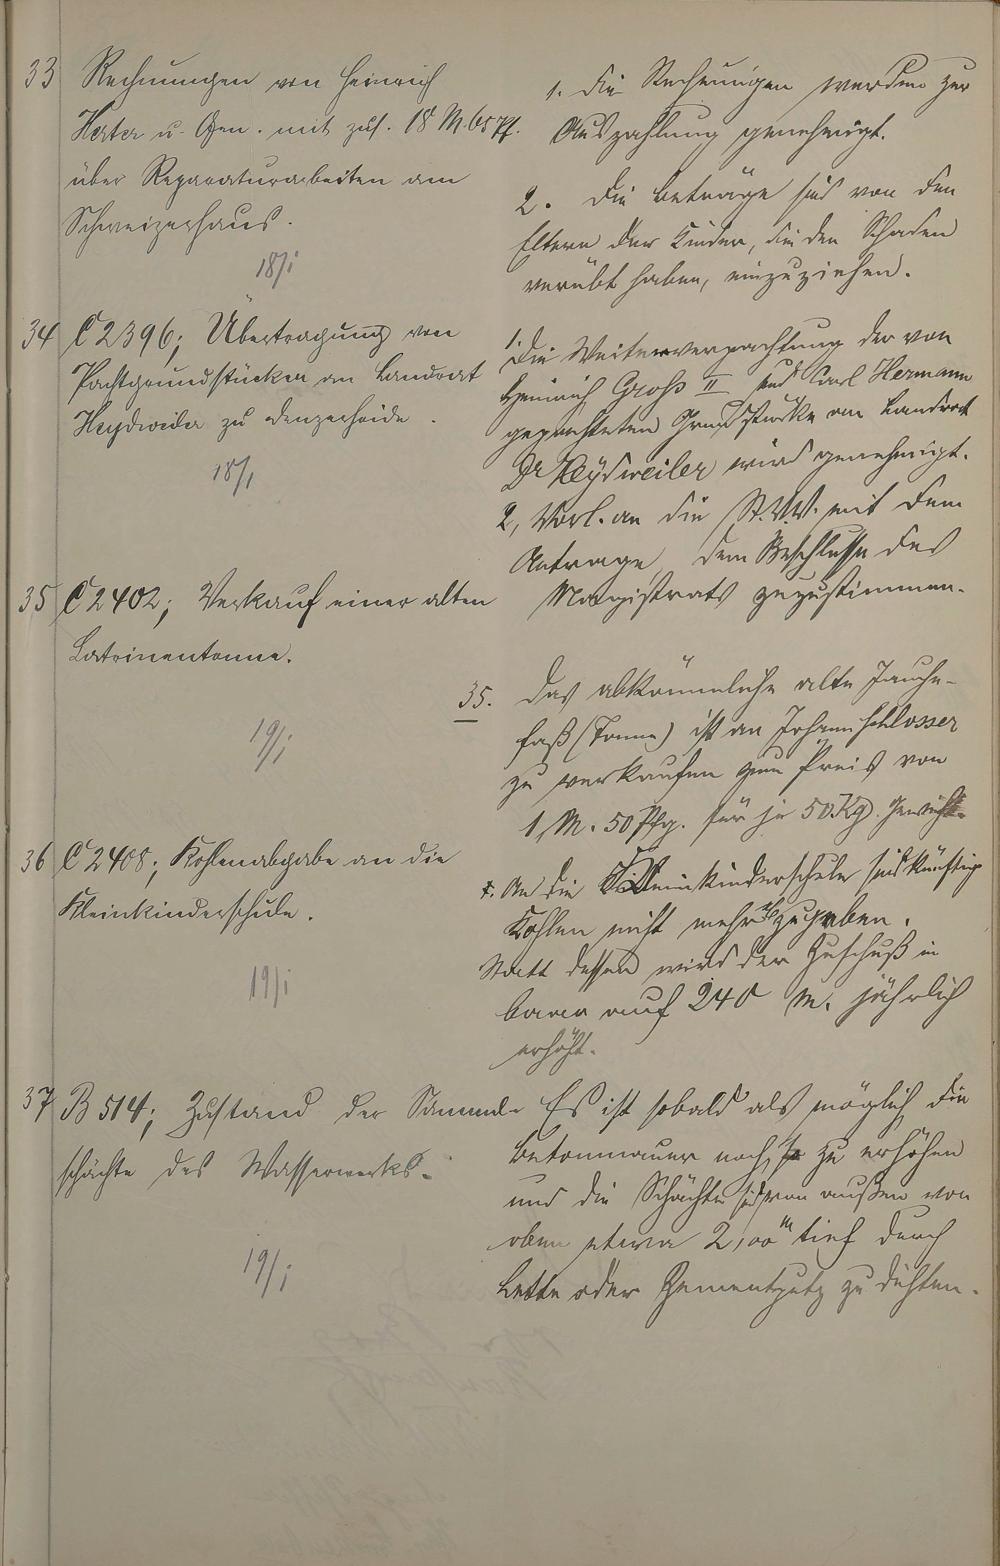 33 Rechnungen von Heinrich
Herter u. Gen. mit zus. 18 M. 65 Pf.
über Reparaturarbeiten am
Schweizerhaus.
18/I
1. Die Rechnungen werden zur
Auszahlung genehmigt.
2. Die Beträge sind von den
Eltern der Kinder, die den Schaden
verübt haben, einzuziehen.
34 C 2396; Übertragung von
Pachtgrundstücken an Landrat
Heydweiler zu
18/I
1. Die Weiterverpachtung der von
Heinrich Groß II und Carl Hermann
gepachteten Grundstücke an Landrat
Dr Heydweiler wird genehmigt.
2, Vorl. an die St.V.V. mit dem
Antrage, dem Beschlusse des
Magistrats zuzustimmen.
35 C 2402; Verkauf einer alten
Latrinentonne.
19/I
35. Das abkömmliche alte Jauche-
faß (Tonne) ist an Johann Schlosser
zu verkaufen zum Preis von
1 M. 50 Pfg. für je 50 Kg. Gewicht.
36 C 2408; Kohlenabgabe an die
Kleinkinderschule.
19/I
An die Kleinkinderschule sind künftig
Kohlen nicht mehr abzugeben.
Statt dessen wird der Zuschuß in
baar auf 240 M. jährlich
erhöht.
37 B 514; Zustand der Sammel-
schächte des Wasserwerks.
19/I
Es ist sobald als möglich die
Betonmauer noch zu erhöhen
und die Schächte sind von außen von
oben etwa 2,00 m tief durch
Lette oder Zementputz zu dichten.